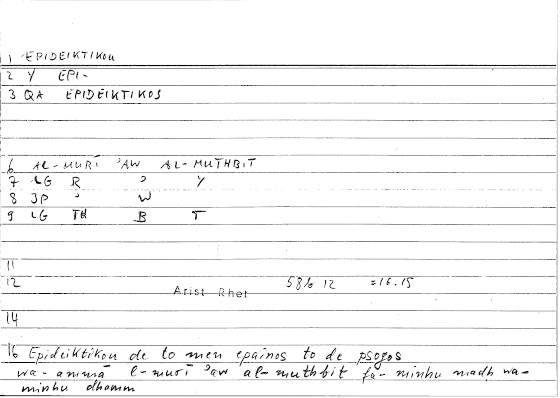 1 EPIDEIKTIKON
2 Y EPI-
3 QA EPIDEIKTIKOS
6 AL-MURĪ ʾAW AL-MUTHBIT
7 LG R ʾ Y
8 JP ʾ W
9 LG TH B T
11
12 Arist Rhet 58b 12 =16.15
14
16 Epideiktikou de to men epainos to de psogos
wa-ammā l-murī ʾaw al-muthbit fa-minhu madḥ wa-
minhu dhamm